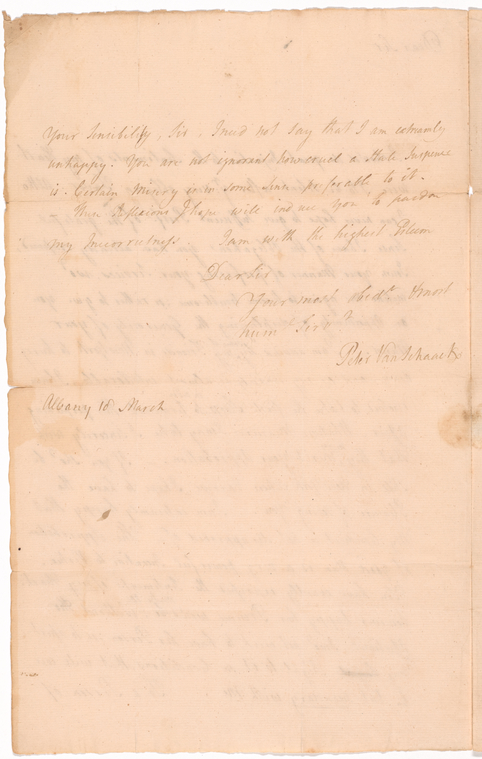 Your Sensibility, Sir, I need not say that I am extreamly
unhappy. You are not ignorant how cruel a State Suspence
is. Certain Misery is in some Sense preferable to it.
These Reflexions I hope will induce you to pardon
my Incorrectness I am with the highest Esteem
Dear Sir
Your most obedt. & most
hum Servt.
Peter Van Schaack
Albany 18 March